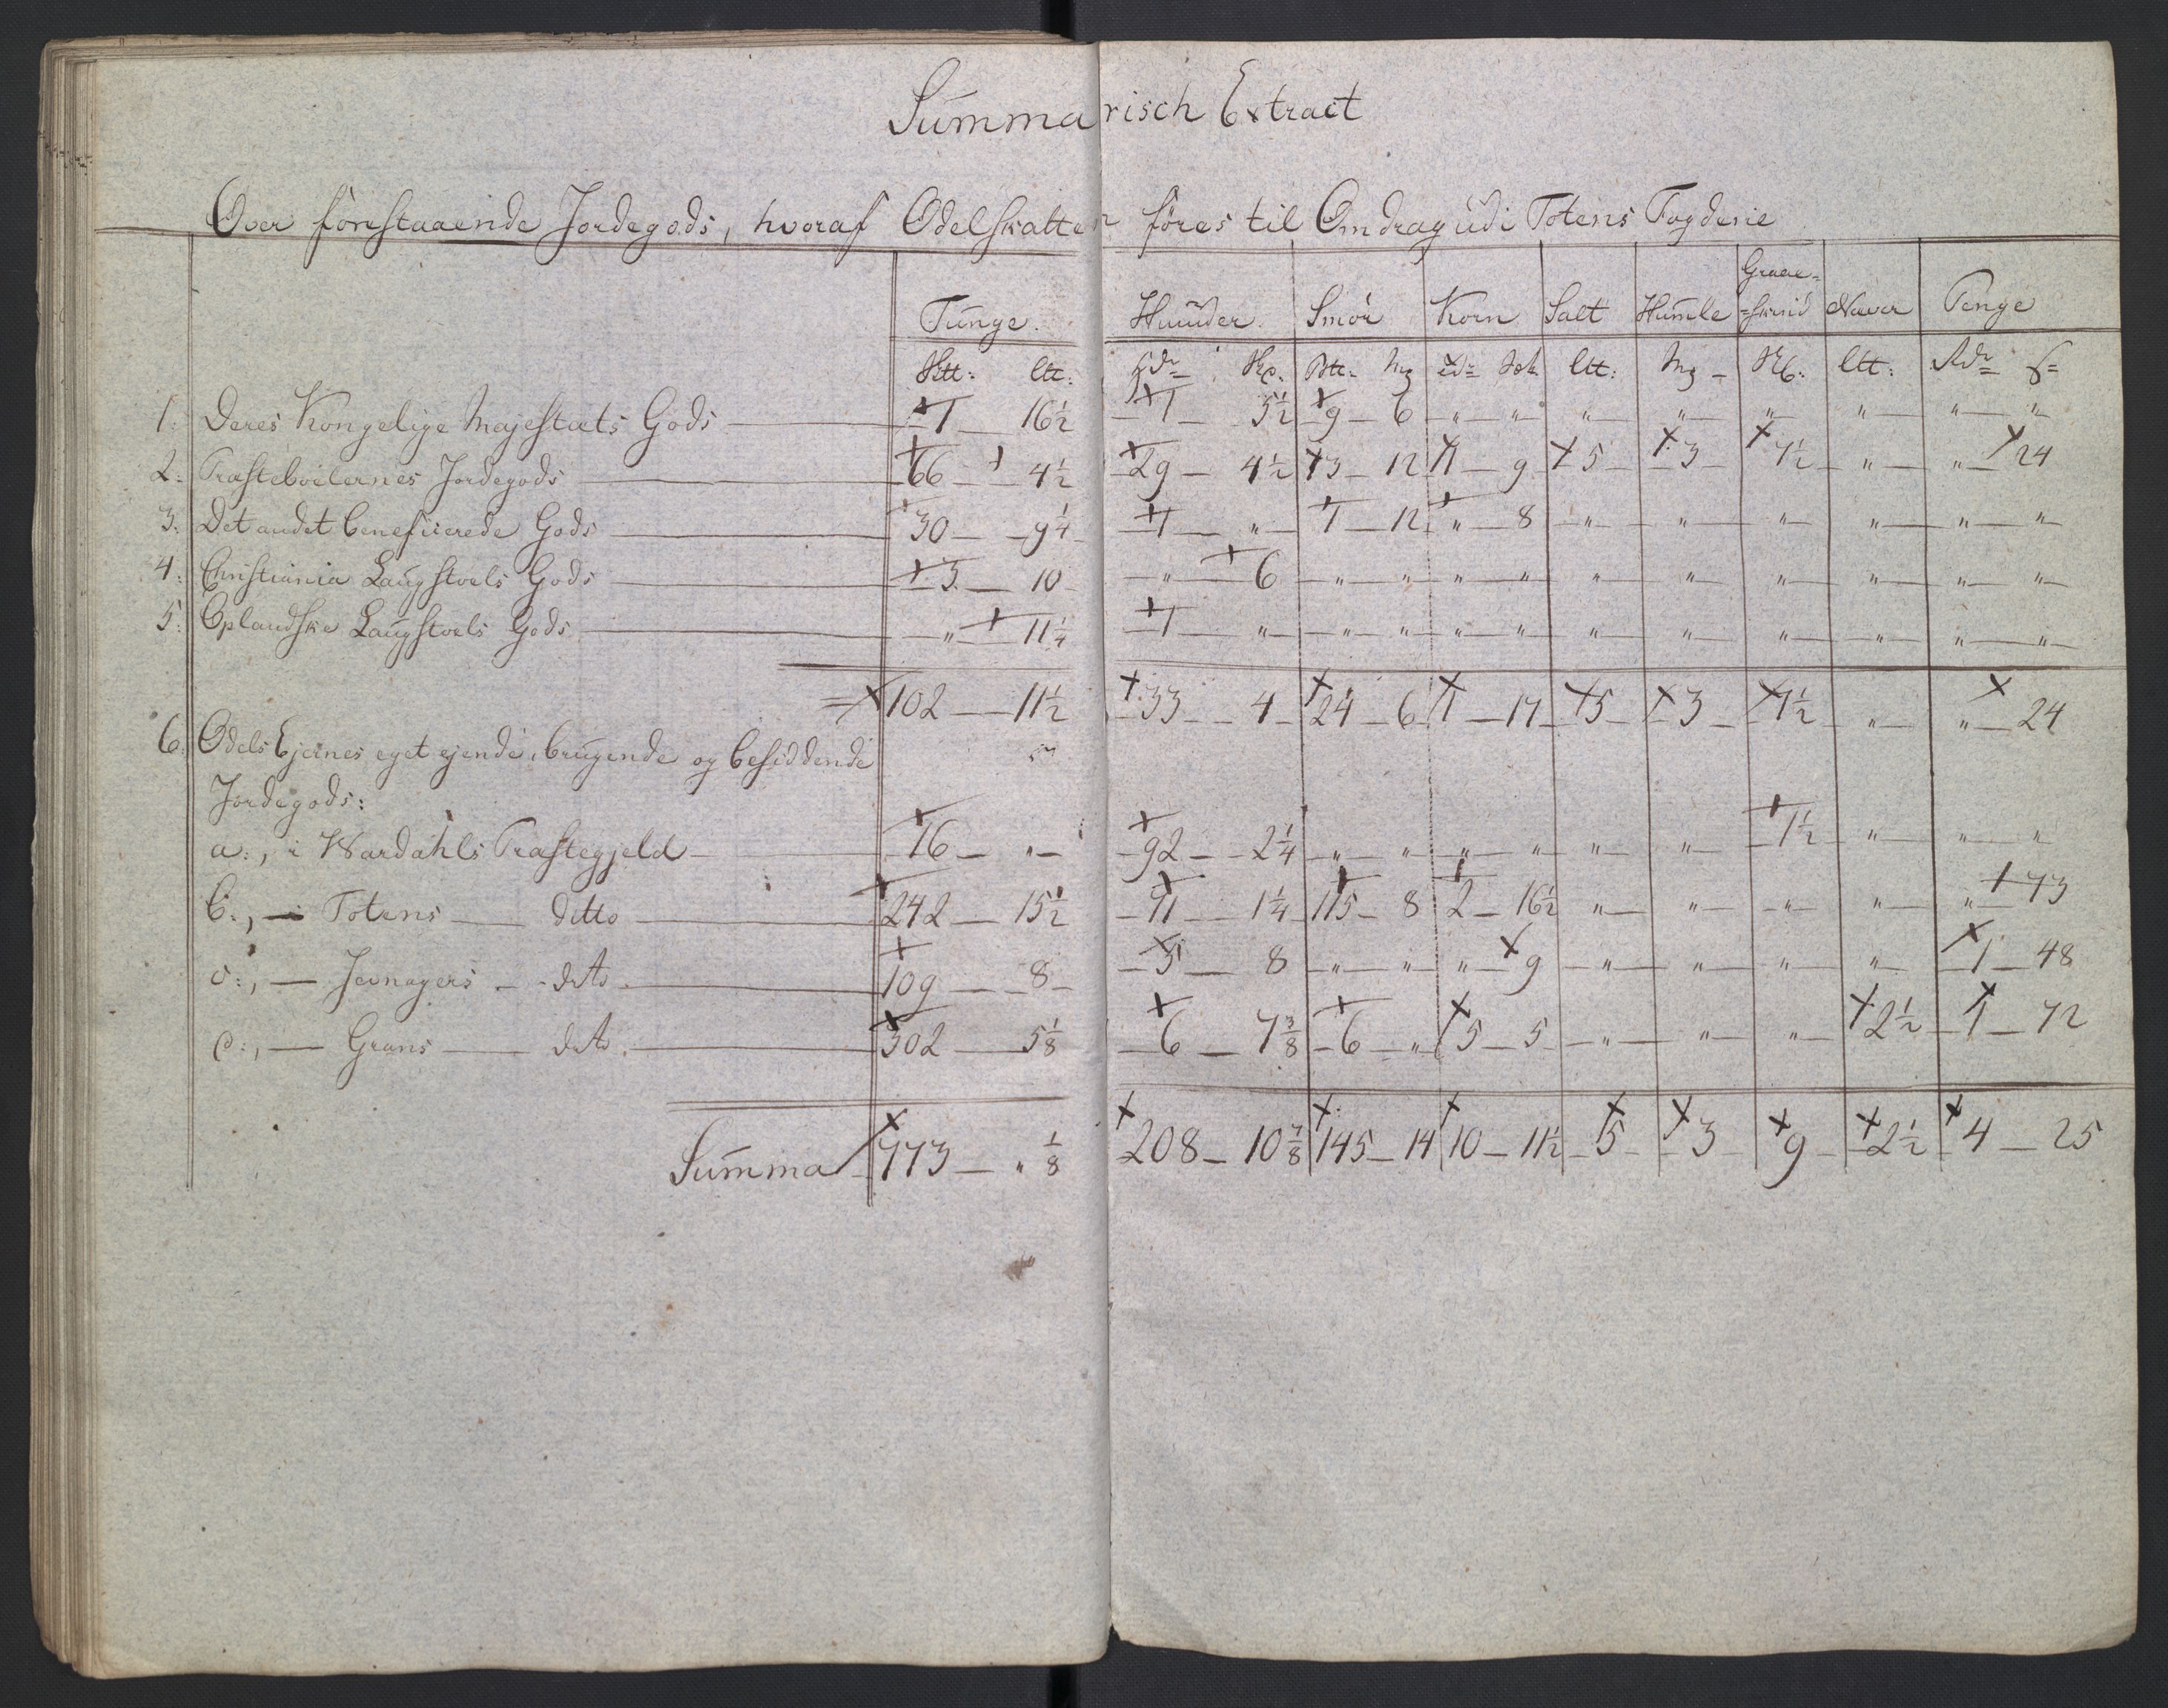 Summarisch Extract
Over forestaaende Jordegods, hvoraf Odelskatten föres til Omdrag udi Totens Fogderie
Tunge. Huuder. Smör Korn Salt Humle Graae-skind Næver Penge
ltt: Ptt: ltt: ltt:
1: Deres Kongelige Majestæts Gods 1 — 16½ 1 — 5½ 9 — 6 „ „ „ „ „ „ „ „
2: Præsteboelernes Jordegods 66 — 4½ 29 — 4½ 13 — 12 1 — 9 5 3 7½ „ „ — 24
3: Det andet beneficerede Gods 30 — 9¼ 1 — „ 1 — 12 „ — 8 „ „ „ „ „ „
4: Christiania Laugstoels Gods 3 — 10 „ — 6 „ „ „ „ „ „ „ „ „ „
5: Oplandske Laugstoels Gods „ — 11¼ 1 — „ „ „ „ „ „ „ „ „ „ „
102 — 11½ 33 — 4 24 — 6 1 — 17 5 3 7½ „ „ — 24
6: Odels Ejernes eget ejende, brugende og besiddende
Jordegods:
a:, i Wardahls Præstegjeld 16 — „ 92 — 2¼ „ „ „ „ „ „ 1½ „ „ „
b:, — i Totens — ditto 242 — 15½ 71 — 1¼ 115 — 8 2 — 16½ „ „ „ „ „ — 73
c:, — Jevnagers — dito 109 — 8 5 — 8 „ „ „ — 9 „ „ „ „ 1 — 48
d:, — Grans — dito 302 — 5⅛ 6 — 7⅜ 6 — „ 5 — 5 „ „ „ 2½ 1 — 72
Summa 773 — „ ⅛ 208 — 10⅞ 145 — 14 10 — 11½ 5 3 9 2½ 4 — 25